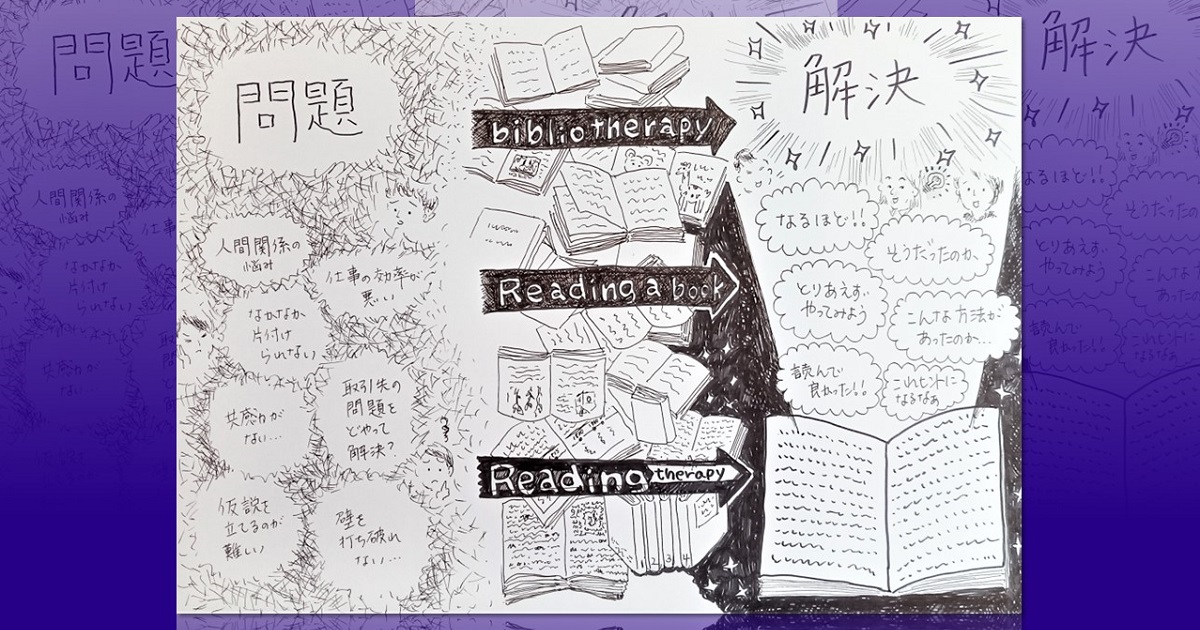 問題
人間関係の
悩み
仕事の効率が
悪い
なかなか
片付け
られない
共感力が
ない…
取引先の
問題を
どやって
解決?
仮説を
立てるのが
難しい
壁を
打ち破れ
ない…
bibliotherapy
Reading a book
Reading therapy
1 2 3 4
解決
なるほど!!
そうだったのか
とりあえず
やってみよう
こんな方法が
あったのか…
読んで
良かった!!
これヒントに
なるなぁ